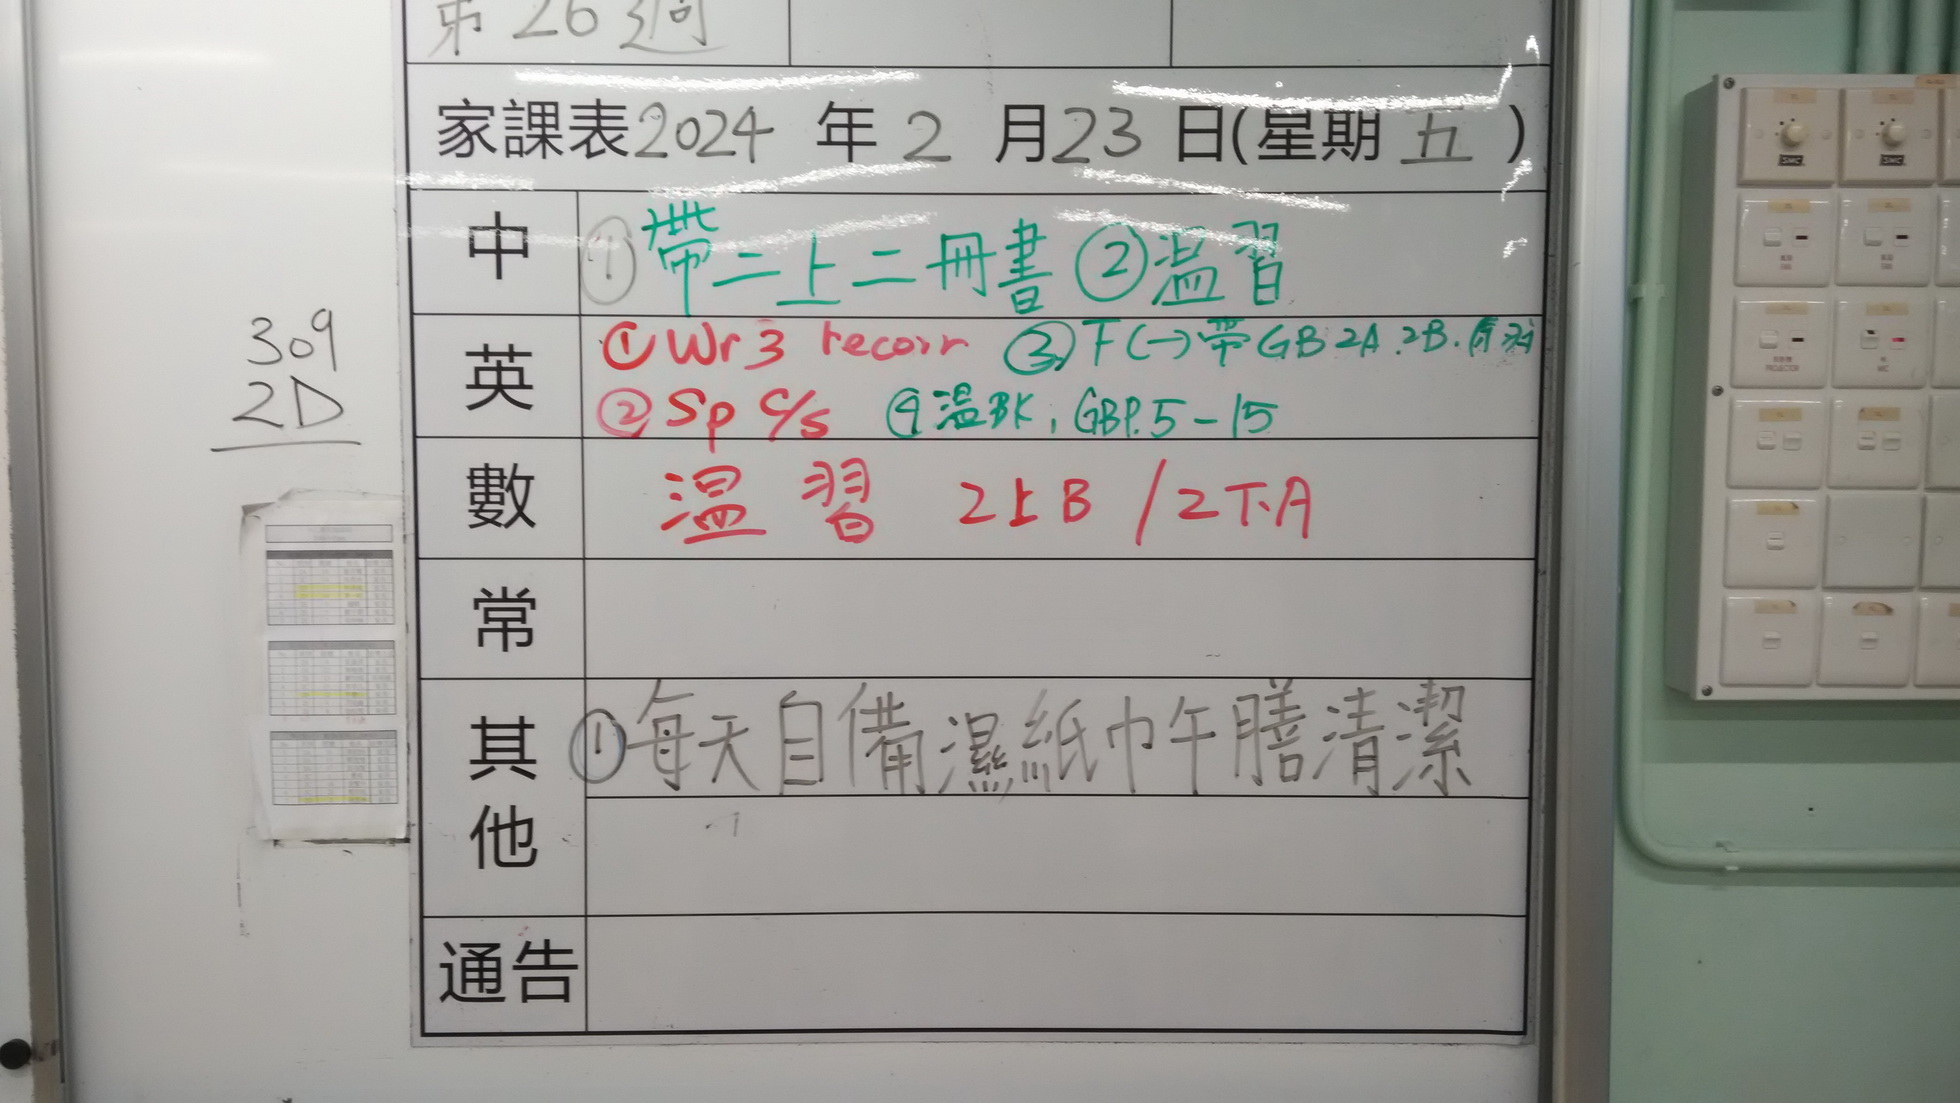 第26週
家課表2024年2月23日(星期五)
中 ①帶二上二冊書 ②温習
英 ①Wr3 recorr ③T(一)帶GB2A.2B.
②Sp c/s ④温BK, GBP.5-15
數 温習 2上B/2下A
常
其他 ①每天自備濕紙巾午膳清潔
通告
309
2D
SMC
SMC
PROJECTOR